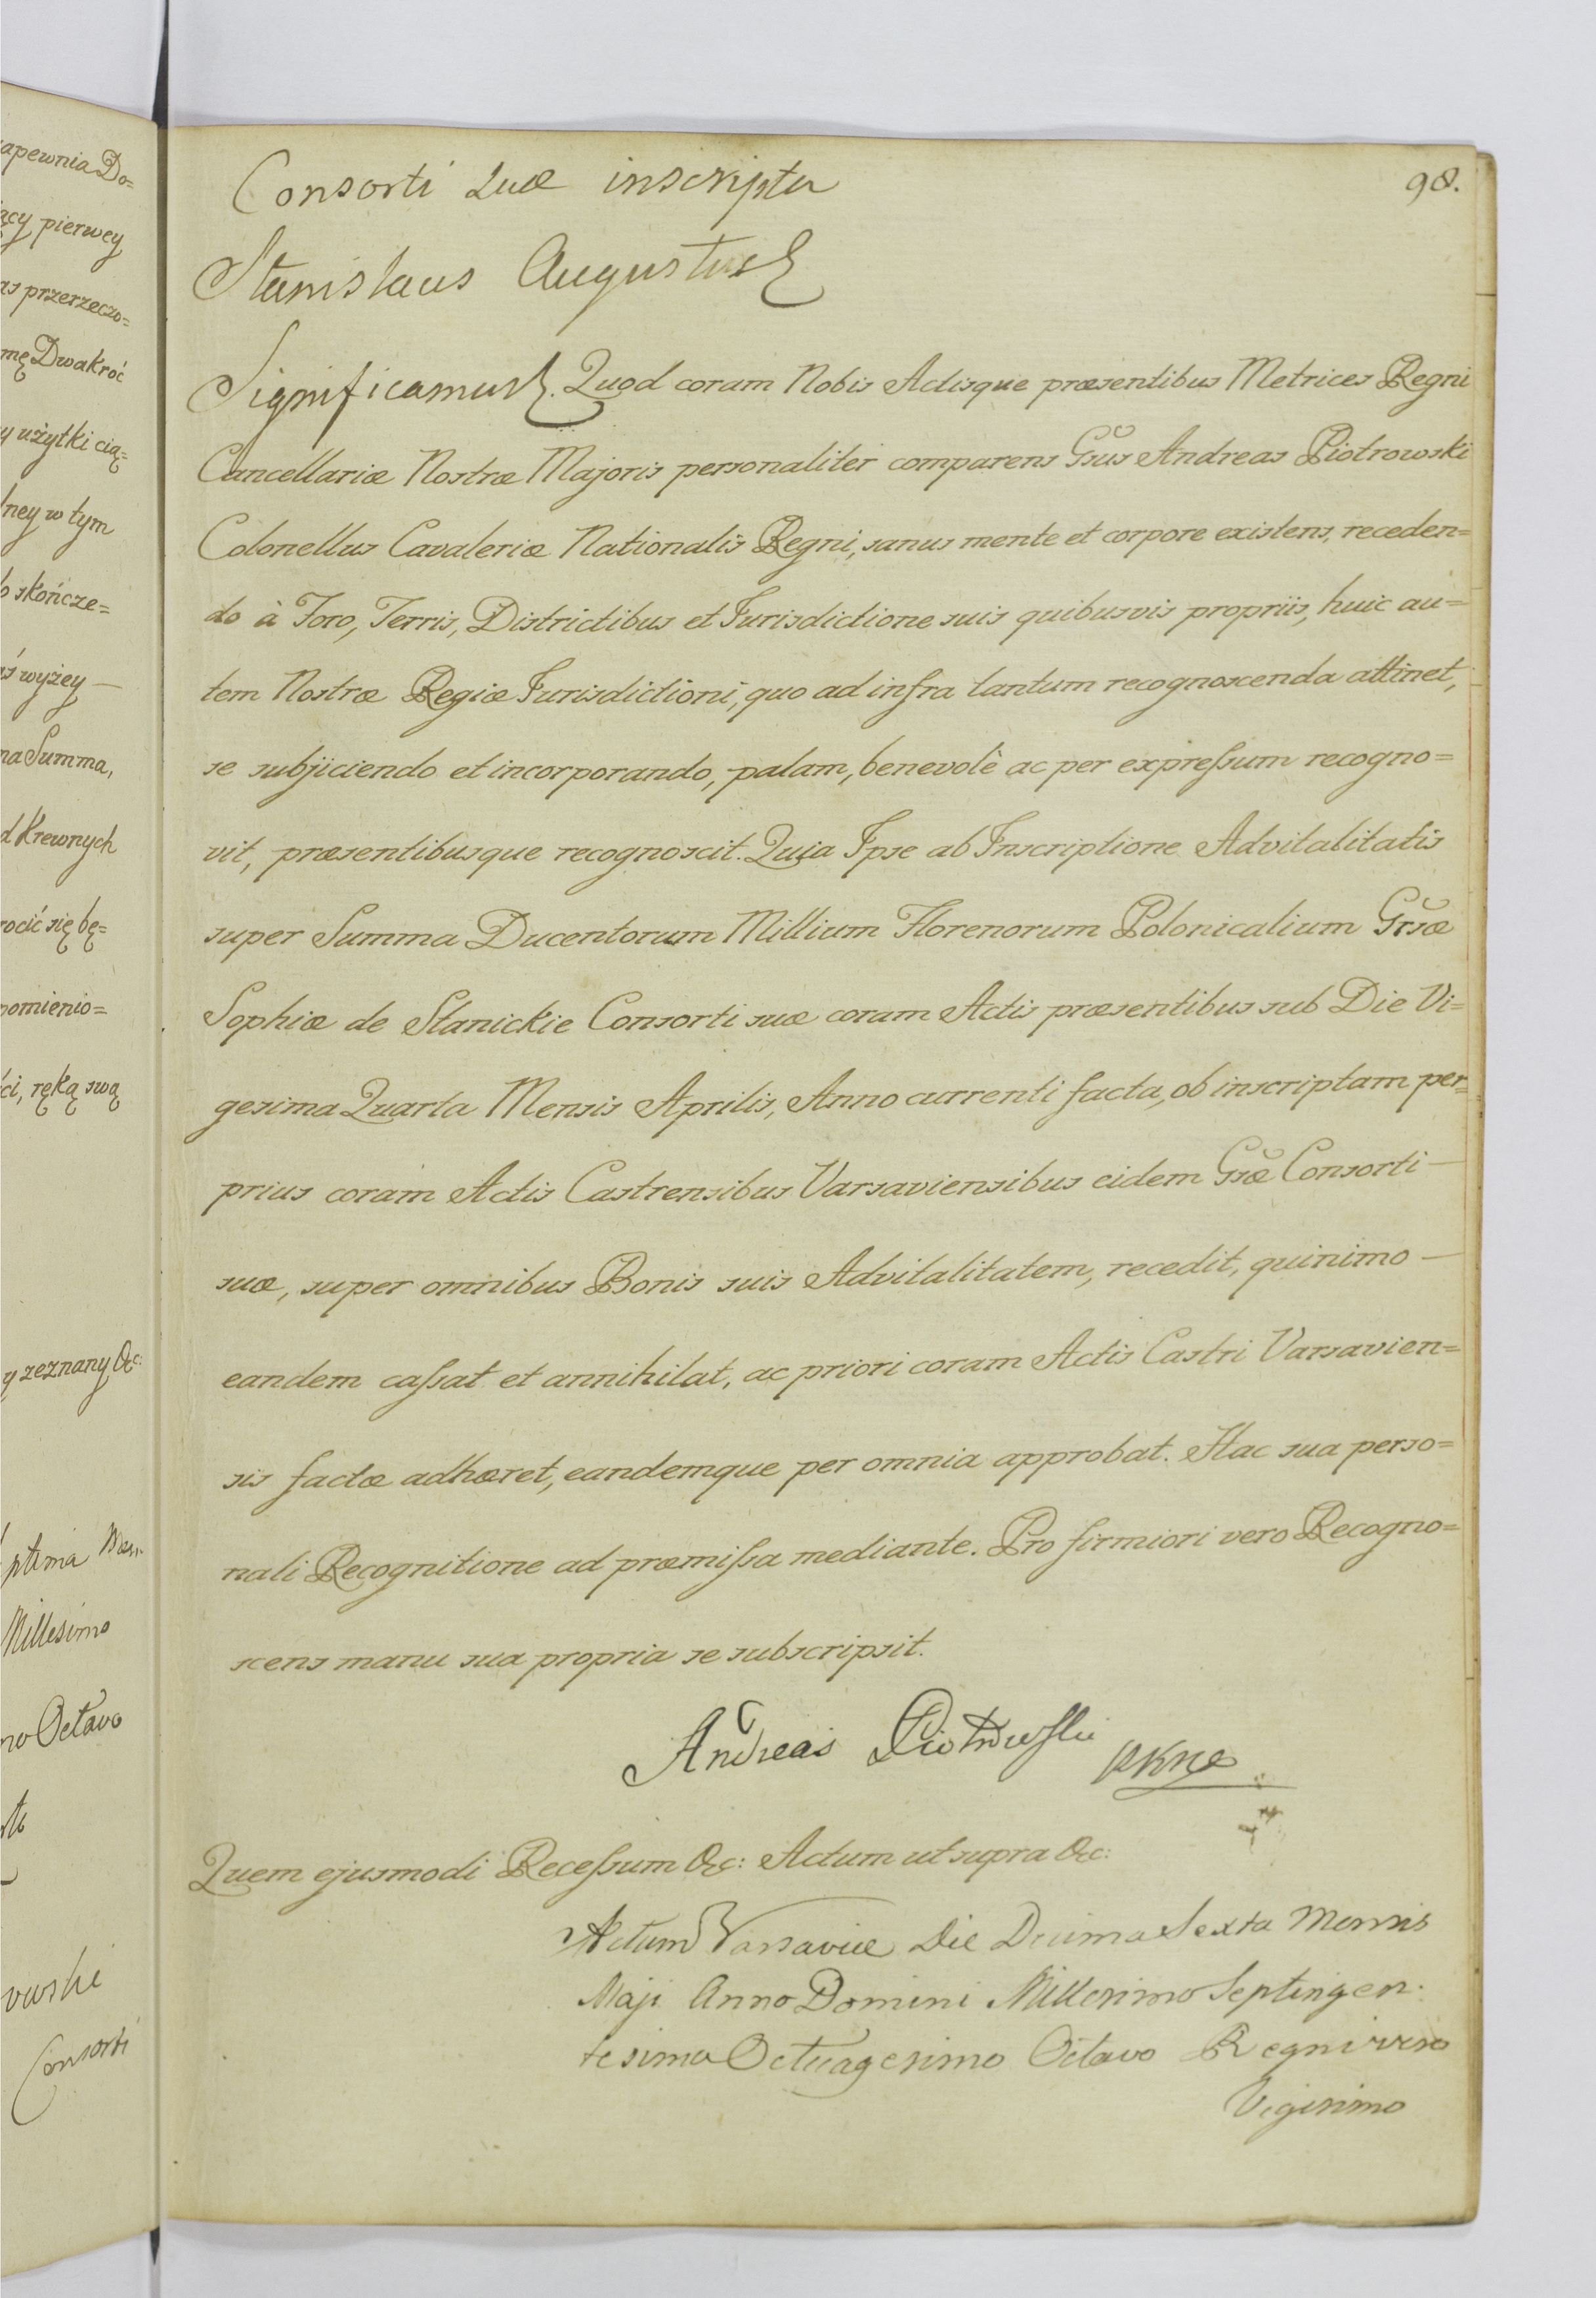 apewnia Do=
ący pierwey
as przerzeczo=
mę Dwakroć
y użytki cią=
lney w tym
o skończe=
aś wyżey —
na Summa,
d Krewnych
rocić się bę=
pomienio=
ci, ręką swą
y zeznany &c:
ptima
Millesimo
no Octavo
wski
Consorti
98.
Consorti suæ inscripta
Stanislaus Augustus
Significamus. Quod coram Nobis Actisque præsentibus Metrices Regni
Cancellariæ Nostræ Majoris personaliter comparens Gsus Andreas Piotrowski
Colonellus Cavaleriæ Nationalis Regni, sanus mente et corpore existens, receden=
do à Foro, Terris, Districtibus et Jurisdictione suis quibusvis propriis, huic au=
tem Nostræ Regiæ Jurisdictioni, quo ad infra tantum recognoscenda attinet,
se subjiciendo et incorporando, palam, benevolè ac per expreſsum recogno=
vit, præsentibusque recognoscit. Quia Ipse ab Inscriptione Advitalitatis
super Summa Ducentorum Millium Florenorum Polonicalium Grsæ
Sophiæ de Stanickie Consorti suæ coram Actis præsentibus sub Die Vi=
gesima Quarta Mensis Aprilis, Anno currenti facta, ob inscriptam per=
prius coram Actis Castrensibus Varsaviensibus eidem Gsæ Consorti —
suæ, super omnibus Bonis suis Advitalitatem, recedit, quinimo —
eandem caſsat et annihilat, ac priori coram Actis Castri Varsavien=
sis factæ adhæret, eandemque per omnia approbat. Hac sua perso=
nali Recognitione ad præmiſsa mediante. Pro firmiori vero Recogno=
scens manu sua propria se subscripsit.
Andreas Piotrowski PKNP
Quem ejusmodi Receſsum &c: Actum ut supra &c:
Actum Varsaviæ Die Decima Sexta Mensis
Maji Anno Domini Millesimo Septingen.
tesimo Octuagesimo Octavo Regni vero
Vigesimo